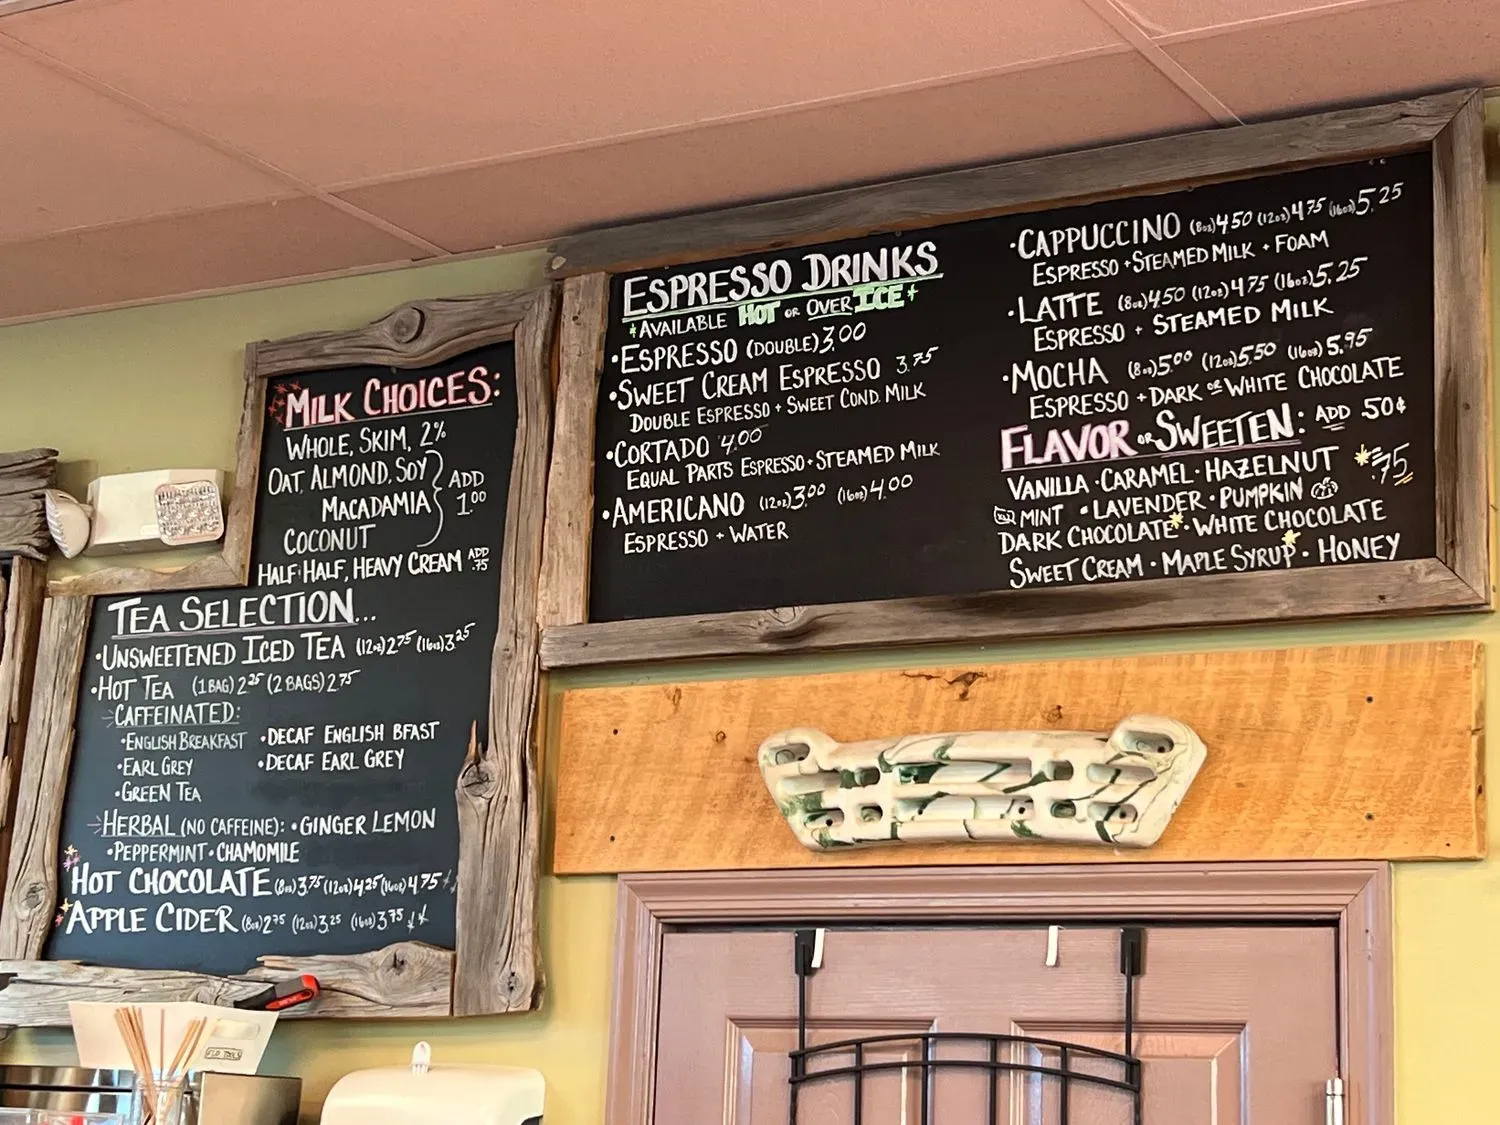 MILK CHOICES:
WHOLE, SKIM, 2%
OAT, ALMOND, SOY
MACADAMIA
COCONUT
ADD
1.00
HALF+HALF, HEAVY CREAM ADD .75
TEA SELECTION...
•UNSWEETENED ICED TEA (12oz)2.75 (16oz)3.25
•HOT TEA (1 BAG) 2.25 (2 BAGS) 2.75
CAFFEINATED:
•ENGLISH BREAKFAST •DECAF ENGLISH BFAST
•EARL GREY •DECAF EARL GREY
•GREEN TEA
HERBAL (NO CAFFEINE): •GINGER LEMON
•PEPPERMINT •CHAMOMILE
HOT CHOCOLATE (8oz)3.75 (12oz)4.25 (16oz)4.75
APPLE CIDER (8oz)2.75 (12oz)3.25 (16oz)3.75
ESPRESSO DRINKS
*AVAILABLE HOT OR OVER ICE*
•ESPRESSO (DOUBLE) 3.00
•SWEET CREAM ESPRESSO 3.75
DOUBLE ESPRESSO + SWEET COND. MILK
•CORTADO 4.00
EQUAL PARTS ESPRESSO + STEAMED MILK
•AMERICANO (12oz)3.00 (16oz)4.00
ESPRESSO + WATER
•CAPPUCCINO (8oz)4.50 (12oz)4.75 (16oz)5.25
ESPRESSO + STEAMED MILK + FOAM
•LATTE (8oz)4.50 (12oz)4.75 (16oz)5.25
ESPRESSO + STEAMED MILK
•MOCHA (8oz)5.00 (12oz)5.50 (16oz)5.95
ESPRESSO + DARK OR WHITE CHOCOLATE
FLAVOR OR SWEETEN: ADD .50¢
VANILLA • CARAMEL • HAZELNUT *=.75
MINT • LAVENDER • PUMPKIN
DARK CHOCOLATE* • WHITE CHOCOLATE
SWEET CREAM • MAPLE SYRUP* • HONEY